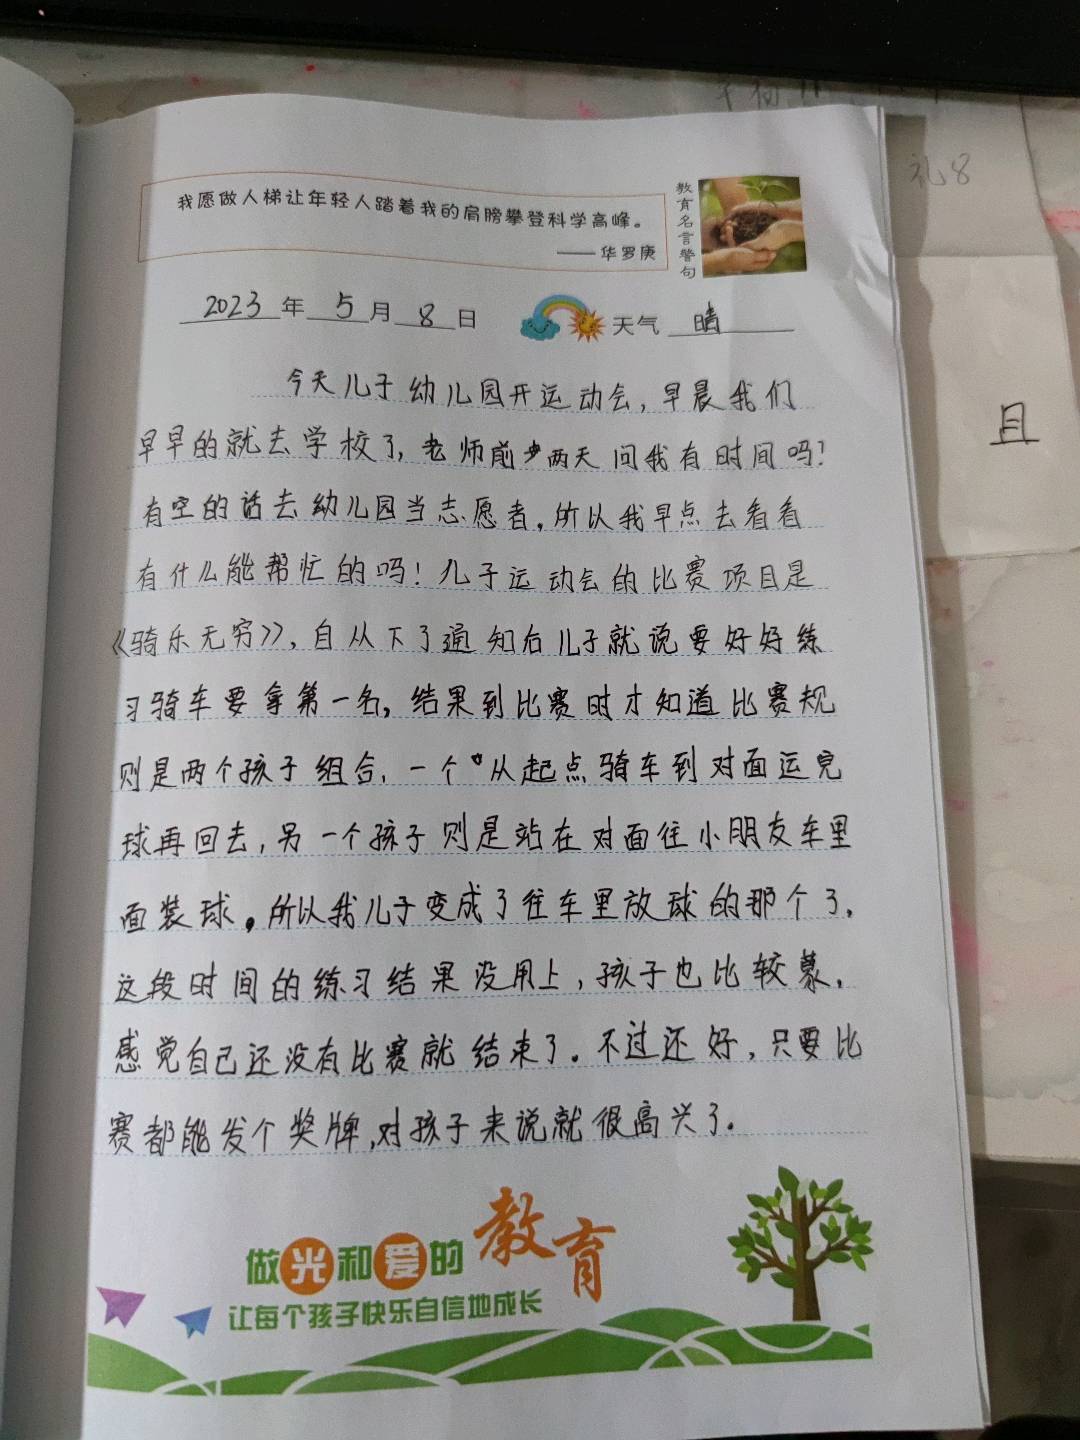 我愿做人梯让年轻人踏着我的肩膀攀登科学高峰。
——华罗庚
教育名言警句
2023年5月8日 天气 晴
今天儿子幼儿园开运动会,早晨我们
早早的就去学校了,老师前两天问我有时间吗?
有空的话去幼儿园当志愿者,所以我早点去看看
有什么能帮忙的吗!儿子运动会的比赛项目是
《骑乐无穷》,自从下了通知后儿子就说要好好练
习骑车要拿第一名,结果到比赛时才知道比赛规
则是两个孩子组合,一个从起点骑车到对面运完
球再回去,另一个孩子则是站在对面往小朋友车里
面装球。所以我儿子变成了往车里放球的那个了,
这段时间的练习结果没用上,孩子也比较蒙,
感觉自己还没有比赛就结束了。不过还好,只要比
赛都能发个奖牌,对孩子来说就很高兴了。
做光和爱的教育
让每个孩子快乐自信地成长
礼8
且